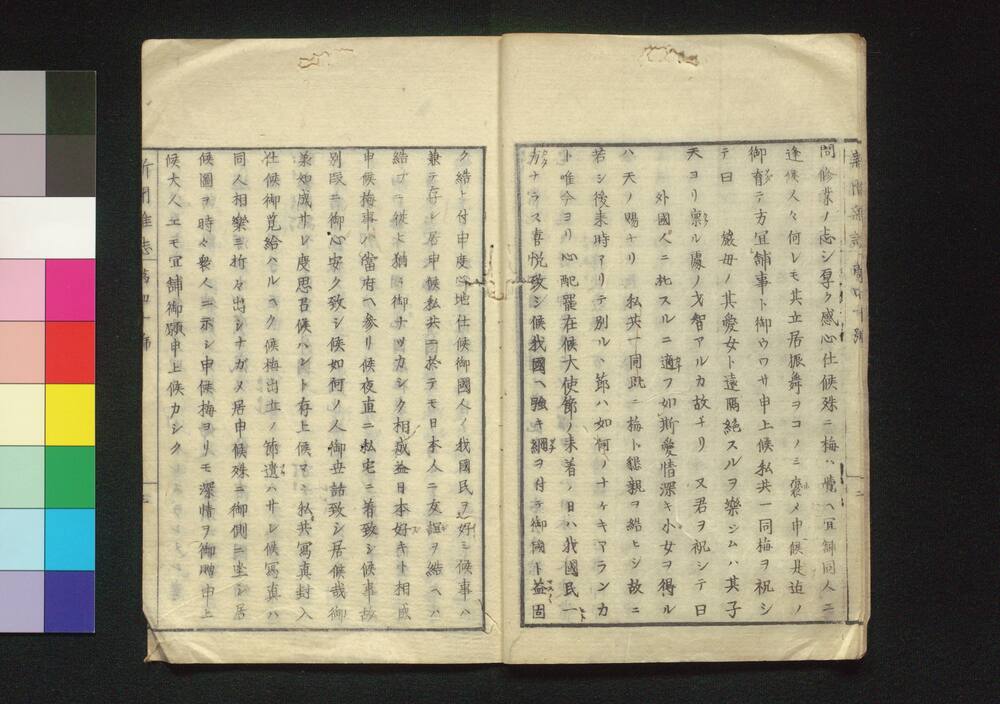 問修業ノ志シ厚ク感心仕候殊ニ梅ハ覺ヘ宜舗同人ニ
逢候人々何レモ其立居振舞ヲコノミ褒メ申候是迠ノ
御育テ方宜舗事ト御ウワサ申上候私共一同梅ヲ祝シ
テ曰 嚴毋ノ其愛女ト遠隔絶スルヲ樂シムハ其子
天ヨリ稟ル處ノ才智アルカ故ナリ 又君ヲ祝シテ曰
外國人ニ托スルニ適フ如斯愛情深キ小女ヲ得ル
ハ天ノ賜ナリ 私共一同既ニ梅ト懇親ヲ結ヒシ故ニ
若シ後来時アリテ別ルヽ節ハ如何ノナケキアランカ
ト唯今ヨリ心配罷在候大使節ノ来着ノ日ハ我國民一
カナラス喜悦致シ候我國ヘ強キ綱ヲ付テ御國ト益固
ク結ヒ付申度心地仕候御國人ノ我國民ヲ好ミ候事ハ
兼テ存シ居申候私共ニ於テモ日本人ニ友誼ヲ結ヘハ
結フニ従ヒ猶々御ナツカシク相成益日本好キト相成
申候梅事ハ當府ヘ参リ候夜直ニ私宅ニ着致シ候事故
別段ニ御心安ク致シ候如何ノ人御世話致シ居候哉御
承知成サレ度思召候ハント存上候マヽ私共寫真封入
仕候御覧給ハルヘク候梅出立ノ節遺ハサレ候寫真ハ
同人相樂ミ折々出シナガメ居申候殊ニ御側ニ坐シ居
候圖ヲ時々衆人ニ示シ申候梅ヨリモ深情ヲ御贈申上
候大人エモ宜舗御願申上候カシク
新聞雑誌 第四十一號